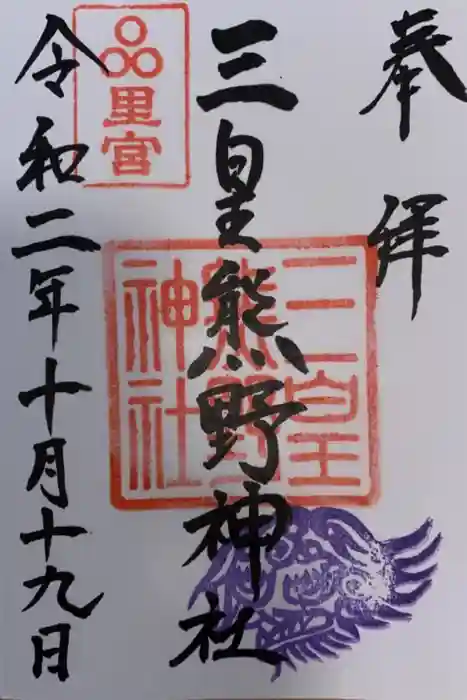 奉拝
三皇熊野神社
三皇熊野神社
里宮
令和二年十月十九日